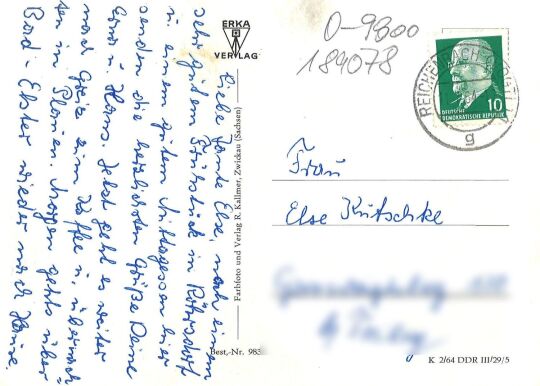 Liebe Tante Else, nach einem
sehr guten Frühstück in
u. einem guten Mittagessen hier
senden die herzlichsten Grüße Deine
u. Hans. Jetzt geht es weiter
nach Greiz zum Kaffee u. übernach-
ten in Plauen. Morgen gehts über
Bad-Elster wieder nach Hause.
ERKA
VERLAG
Farbfoto und Verlag R. Kallmer, Zwickau (Sachsen)
Best.-Nr. 983
0-9800
184078
REICHENBACH
DEUTSCHE
DEMOKRATISCHE REPUBLIK
10
g
Frau
Else Kutschke
K 2/64 DDR III/29/5